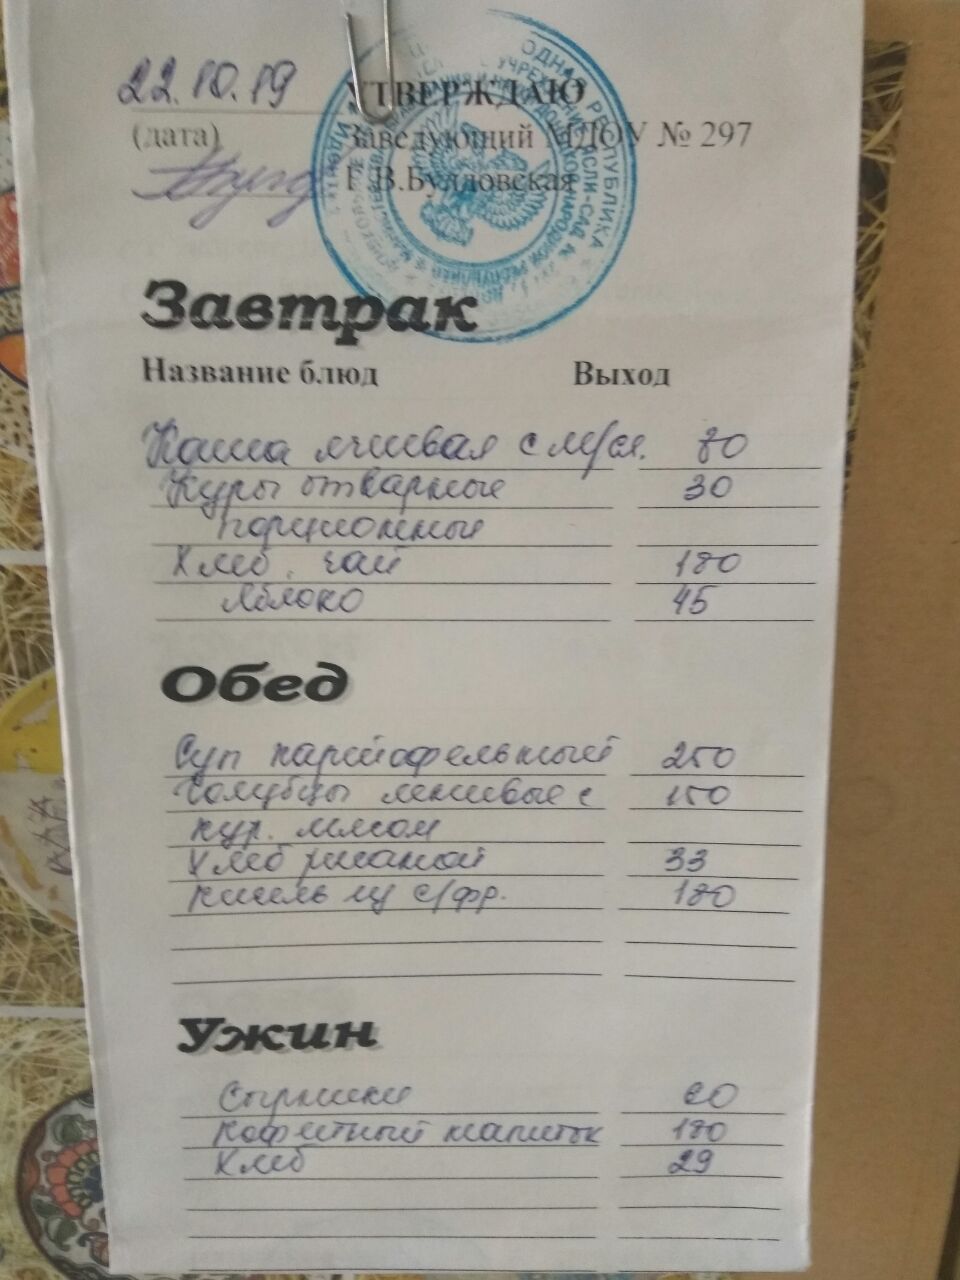 22.10.19
УТВЕРЖДАЮ
(дата)
Заведующий МДОУ № 297
Г.В.Булдовская
Завтрак
Название блюд Выход
Каша ячневая с м/сл. 80
Куры отварные 30
порционные
Хлеб, чай 180
Яблоко 45
Обед
Суп картофельный 250
Голубцы ленивые с 150
кур. мясом
Хлеб ржаной 33
Кисель из с/фр. 180
Ужин
Сырники 60
Кофейный напиток 180
Хлеб 29